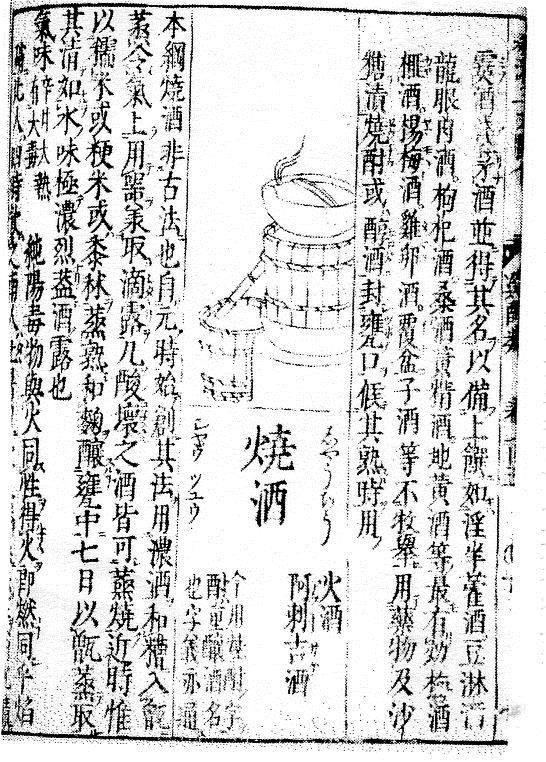 酒並得其名以備上饌如淫羊藿酒豆淋酒
龍眼肉酒枸杞酒桑酒黄精酒地黄酒等最有効梅酒
榧酒楊梅酒雞卵酒覆盆子酒等不枚擧用藥物及沙
糖漬燒酎或醇酒封甕口候其熟時用
燒酒
しやうちう
シャウ ツユウ
火酒
阿剌吉酒
今用酎字
酎重釀酒名
也字義亦通
本綱燒酒非古法也自元時始創其法用濃酒和糟入甑
蒸令氣上用器承取滴露凡酸壞之酒皆可蒸燒近時惟
以糯米或粳米或黍秫蒸熟和麴釀甕中七日以甑蒸取
其清如水味極濃烈葢酒露也
氣味辛甘大熱
有大毒
純陽毒物與火同性得火即燃同乎焰
北人四時飲之南人